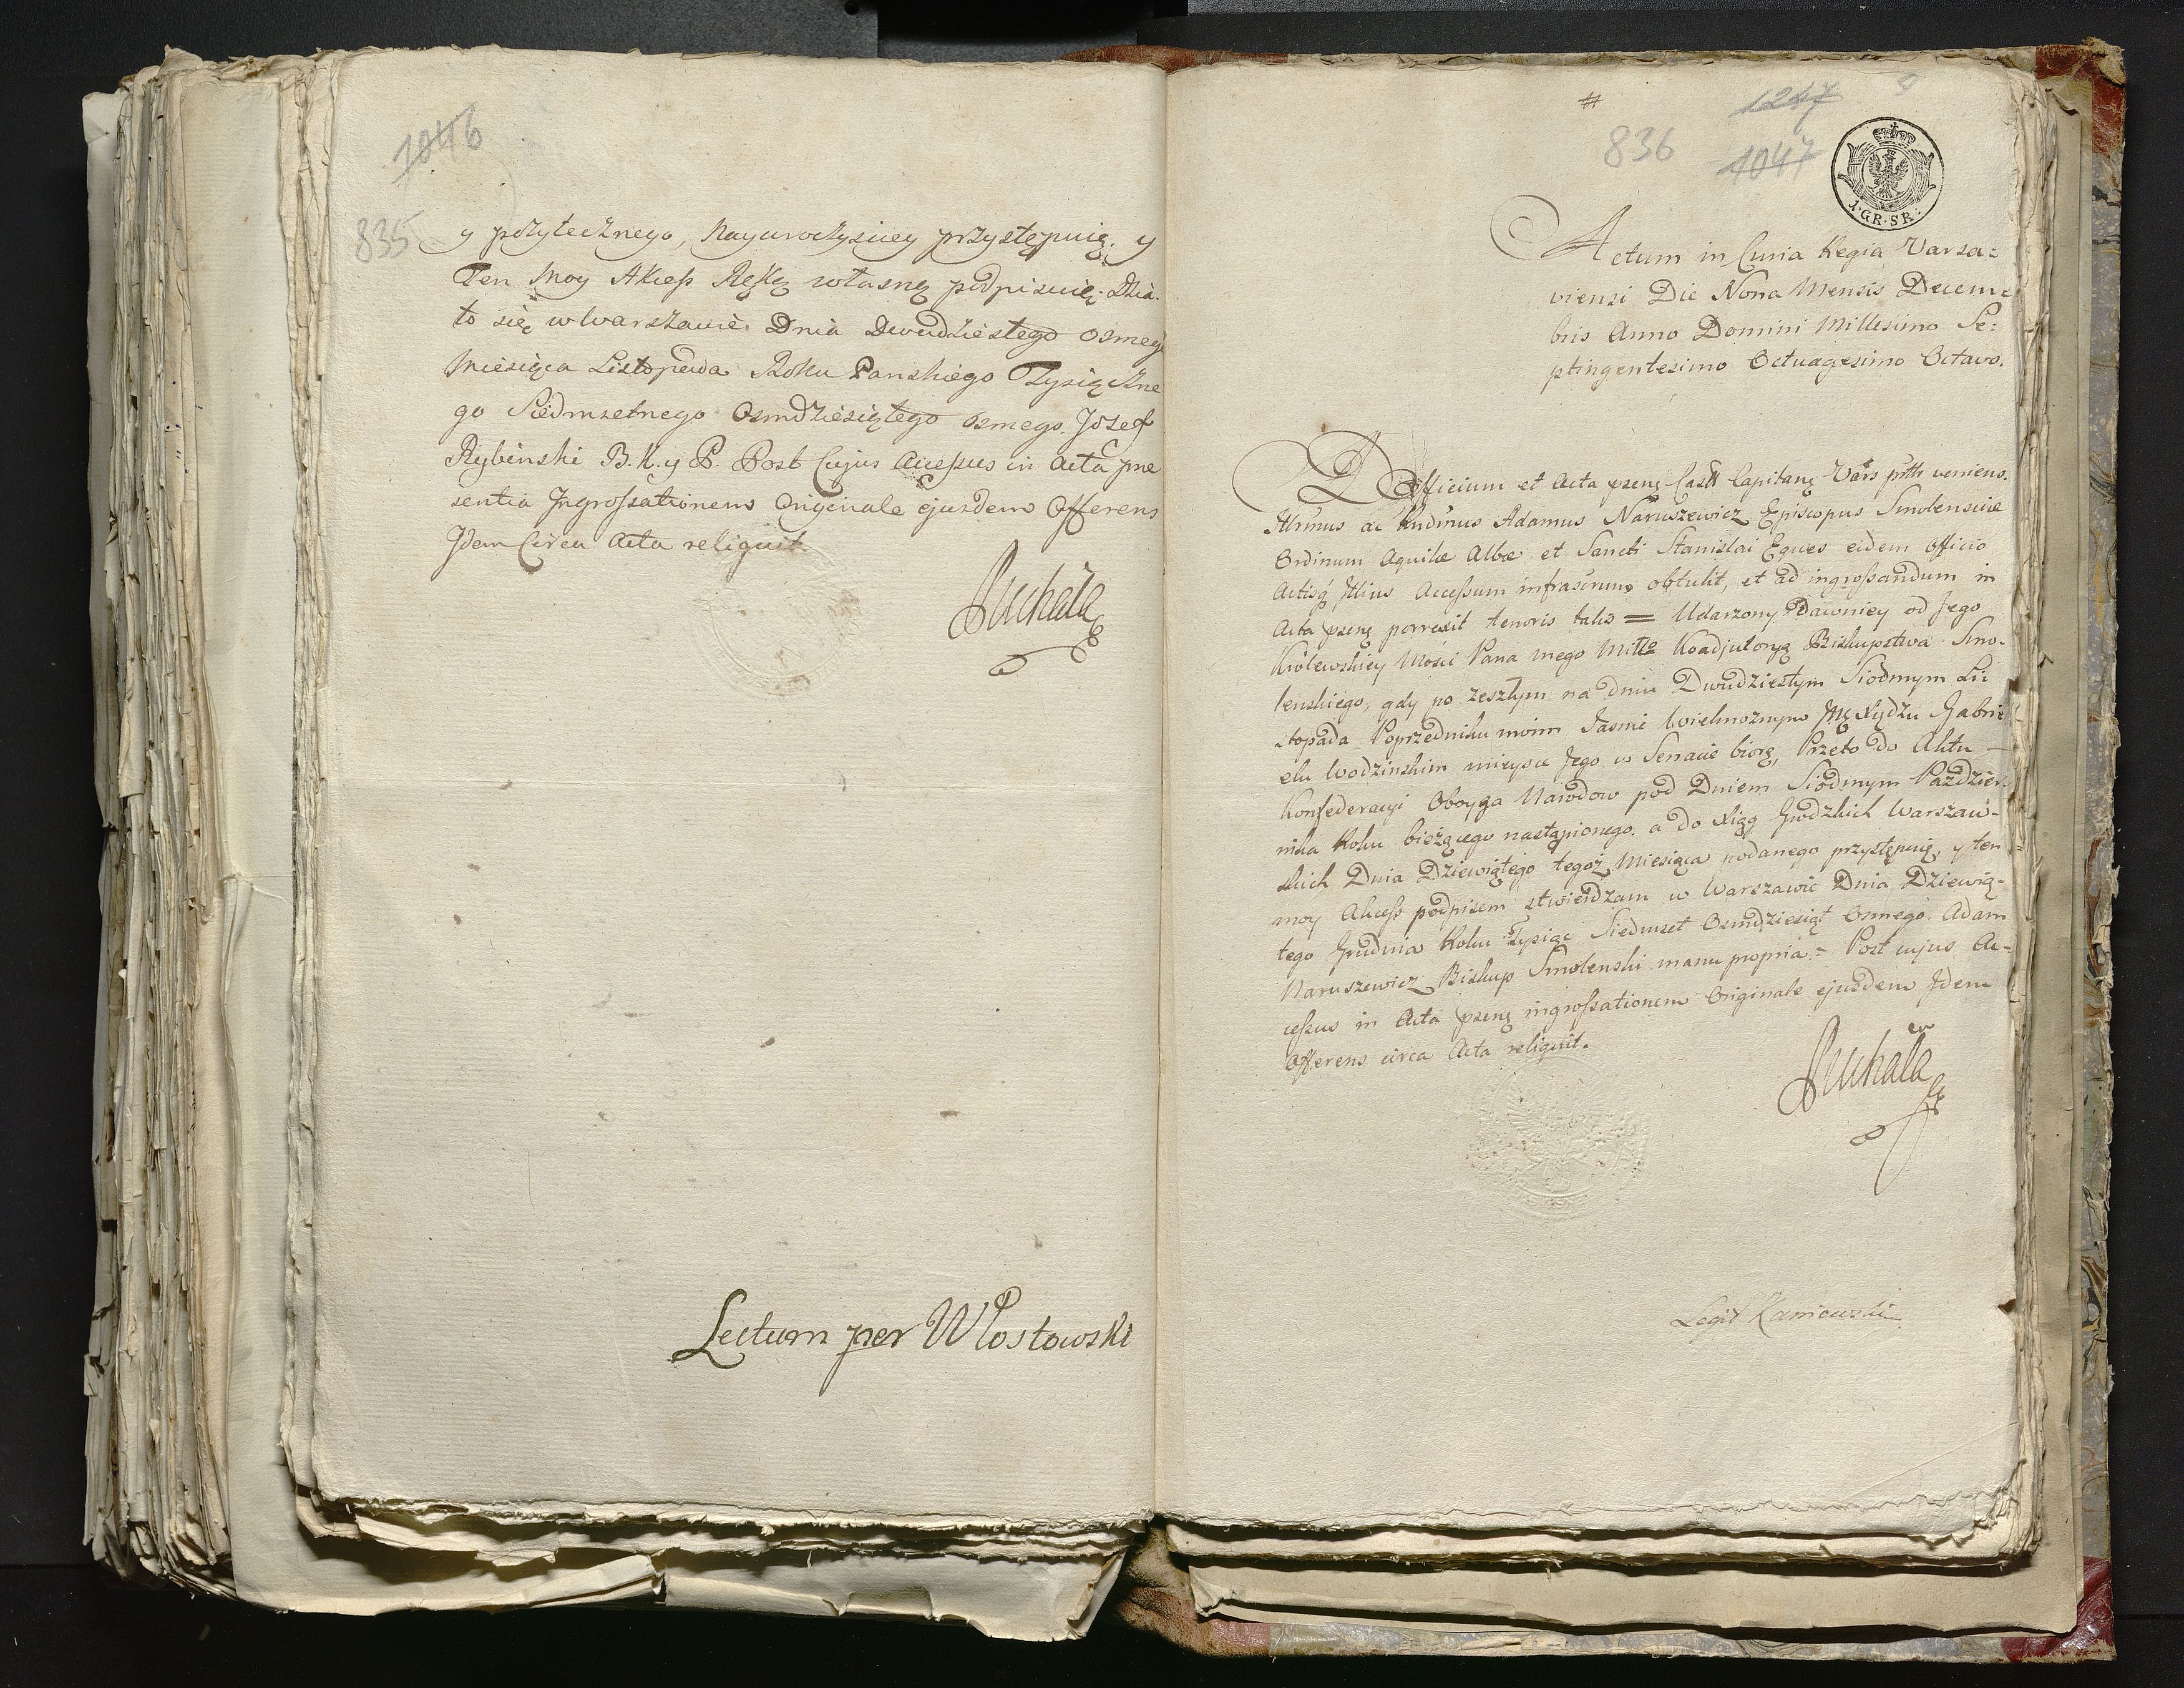 1046
835
y pożytecznego, Nayuroczyściey przystępuię, y
Ten Moy Akceſs Ręką własną podpisuię. Dzia-
ło się w Warszawie Dnia Dwudziestego osmego
Miesiąca Listopada Roku Panskiego Tysiączne
go Siedmsetnego Osmdziesiątego osmego. Jozef
Rybinski B. K. y P. Post Cujus Acceſsus in Acta prae
sentia Ingroſsationem Originale ejusdem Offerens
Idem Circa Acta reliquit.
Puchała
Lectum per Włostowski
1247
836
1047
1·GR·SR·
Actum in Curia Regia Varsa=
viensi Die Nona Mensis Decem=
bris Anno Domini Millesimo Se=
ptingentesimo Octuagesimo Octavo.
Officium et Acta psens Castr Capitana Vars psthr veniens.
Illrimus ac Rndimus Adamus Naruszewicz Episcopus Smolensciae
Ordinum Aquilae Albae et Sancti Stanislai Eques eidem Officio
Actisq Illius Acceſsum infrascrum obtulit, et ad ingroſsandum in
Acta psens porrexit tenoris talis = Udarzony Dawniey od Jego
Królewskiey Mości Pana mego Miłło Koadjutoryą Biskupstwa Smo-
lenskiego, gdy po zeszłym na dniu Dwudziestym Siodmym Li
stopada Poprzedniku moim Jasnie Wielmożnym Xiędzu Gabri
elu Wodzinskim mieysce Jego w Senacie biorę, Przeto do Aktu
Konfederacyi Oboyga Narodow pod Dniem Siodmym Paździer-
nika Roku bieżącego nastąpionego, a do Xiąg Grodzkich Warszaw-
skich Dnia Dziewiątego tegoż Miesiąca podanego przystępuię, y ten
moy Akceſs podpisem stwierdzam w Warszawie Dnia Dziewią-
tego Grudnia Roku Tysiąc Siedmset Osmdziesiąt Osmego. Adam
Naruszewicz Biskup Smolenski manu propria. = Post cujus Ac-
ceſsus in Acta psens ingroſsationem Originale ejusdem Idem
Offerens circa Acta reliquit.
Puchała
Legit Kaniewski